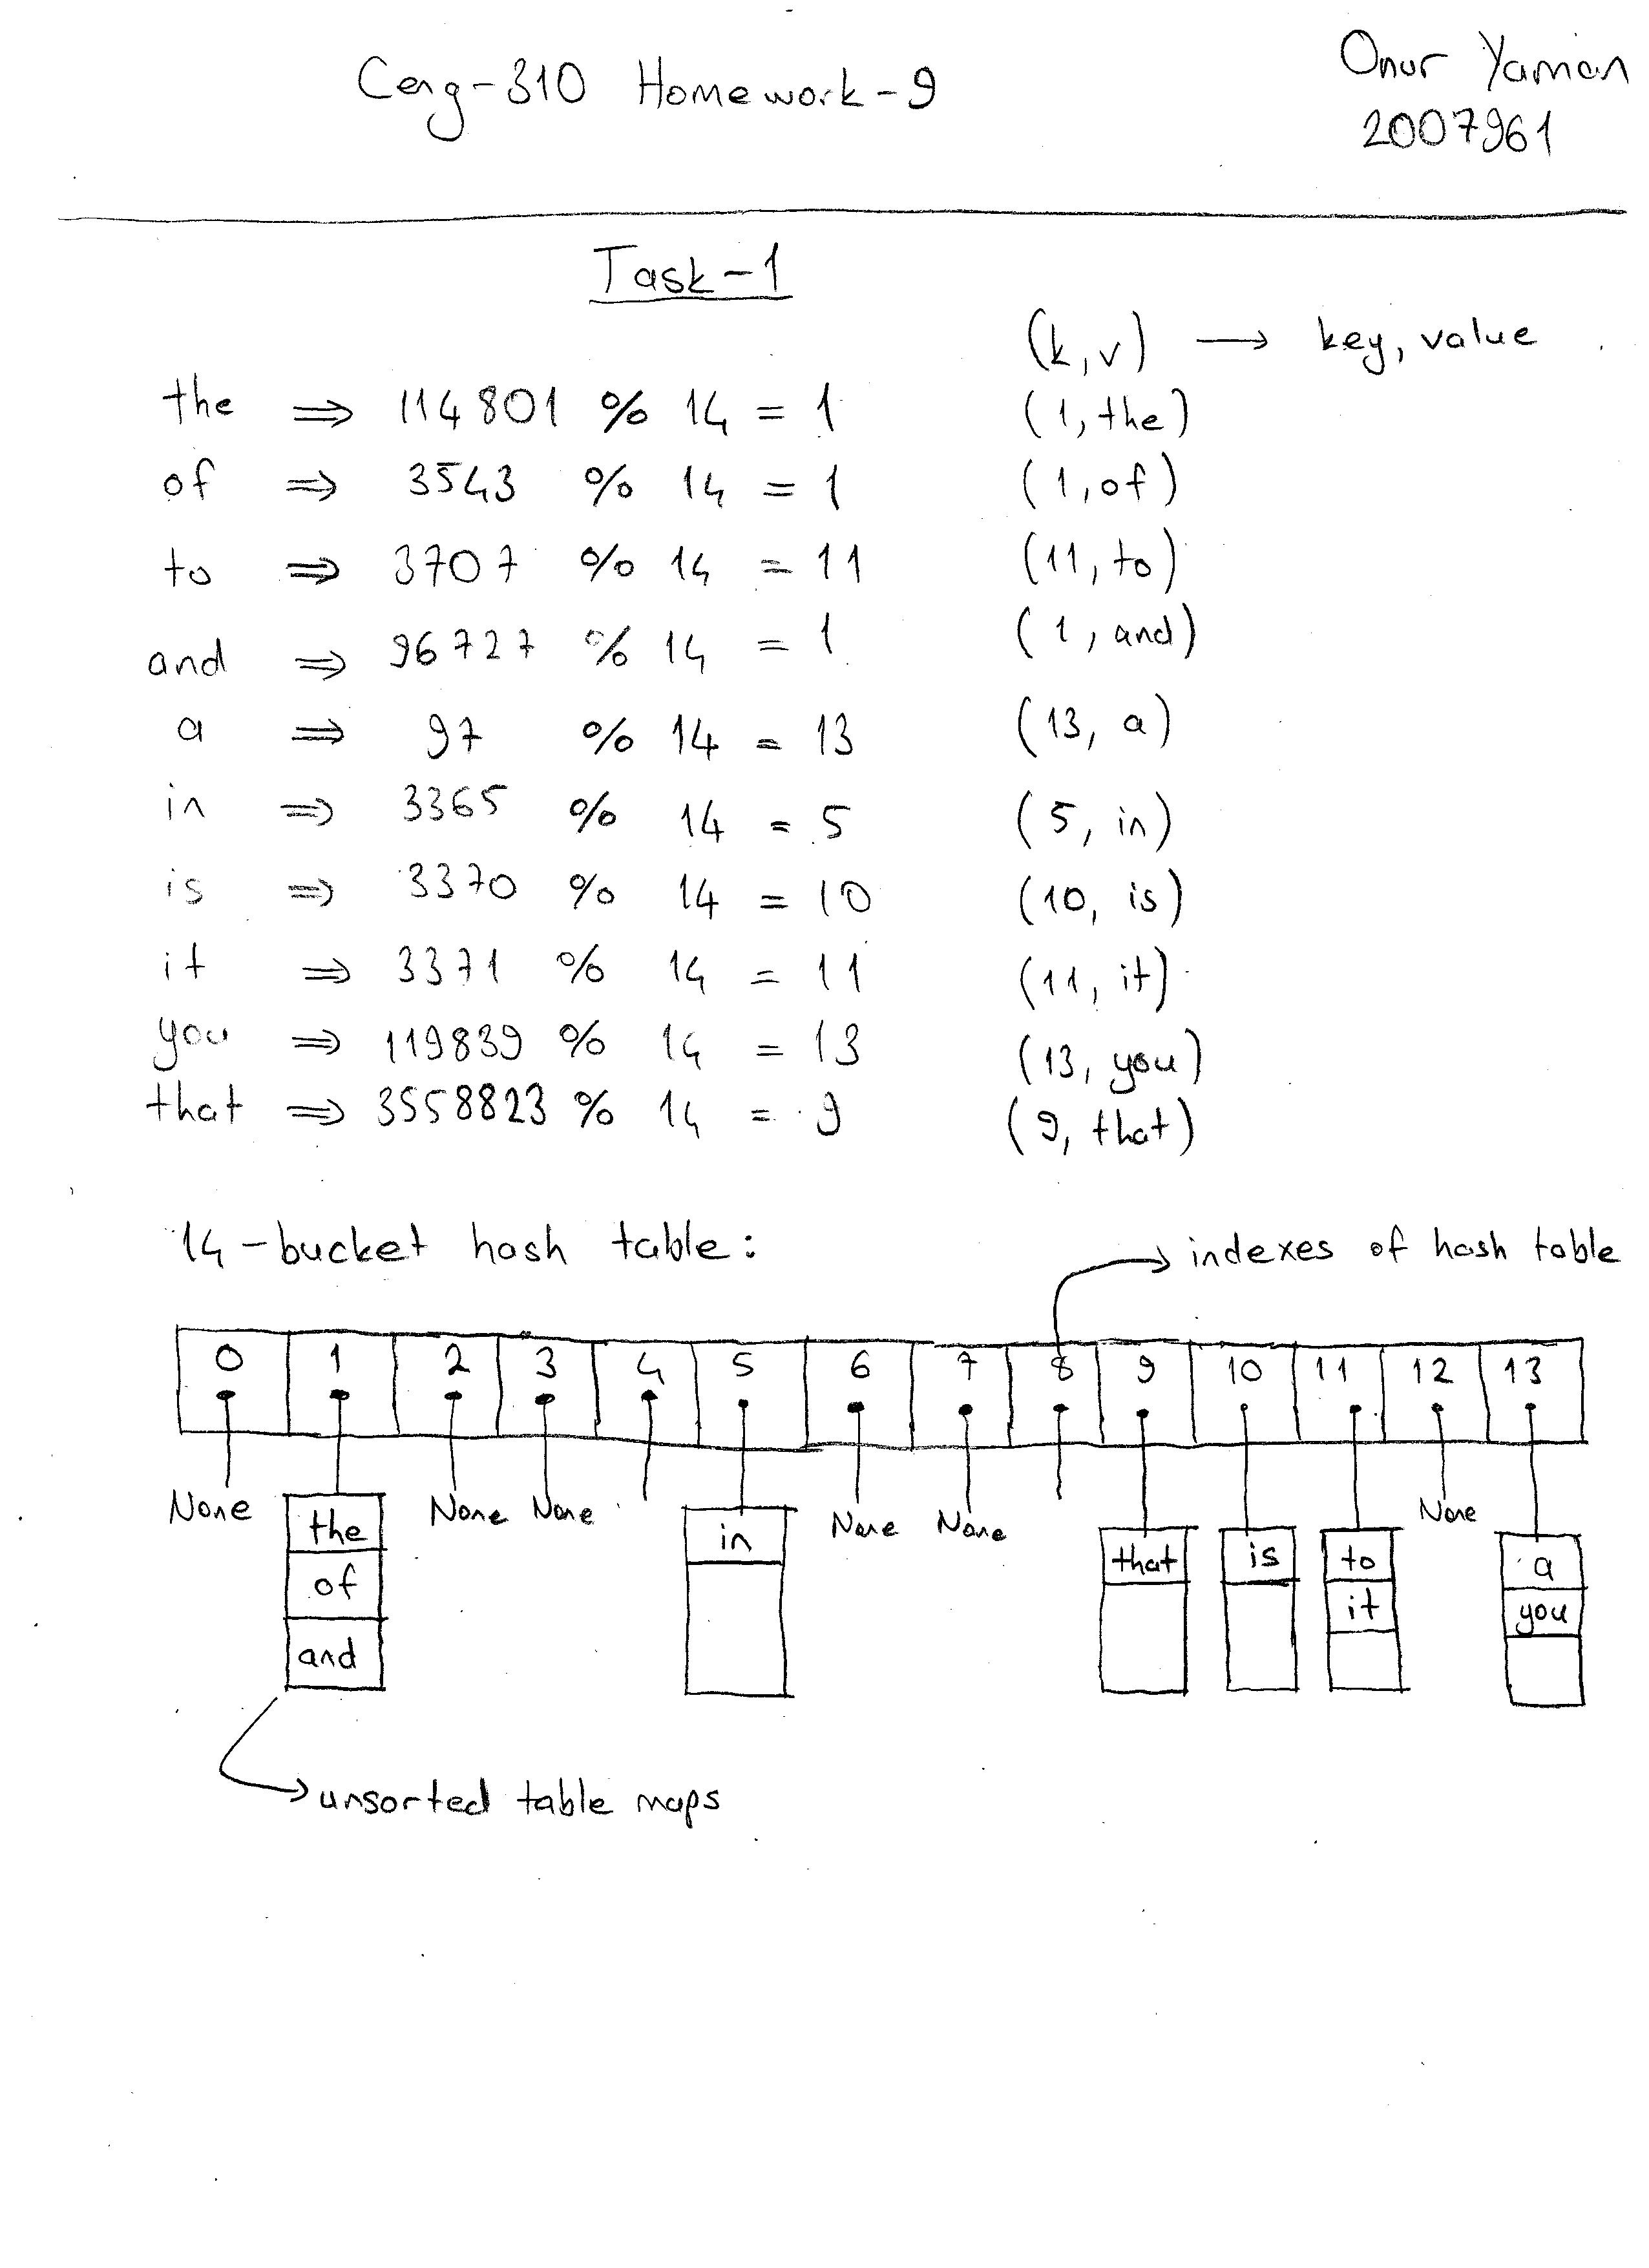 Ceng-310 Homework-9
Onur Yaman
2007961
Task-1
(k,v) → key, value
the ⇒ 114801 % 14 = 1 (1, the)
of ⇒ 3543 % 14 = 1 (1, of)
to ⇒ 3707 % 14 = 11 (11, to)
and ⇒ 96727 % 14 = 1 (1, and)
a ⇒ 97 % 14 = 13 (13, a)
in ⇒ 3365 % 14 = 5 (5, in)
is ⇒ 3370 % 14 = 10 (10, is)
it ⇒ 3371 % 14 = 11 (11, it)
you ⇒ 119839 % 14 = 13 (13, you)
that ⇒ 3558823 % 14 = 9 (9, that)
14-bucket hash table:
→ indexes of hash table
0 1 2 3 4 5 6 7 8 9 10 11 12 13
None the None None in None None that is to None a
of it you
and
→ unsorted table maps